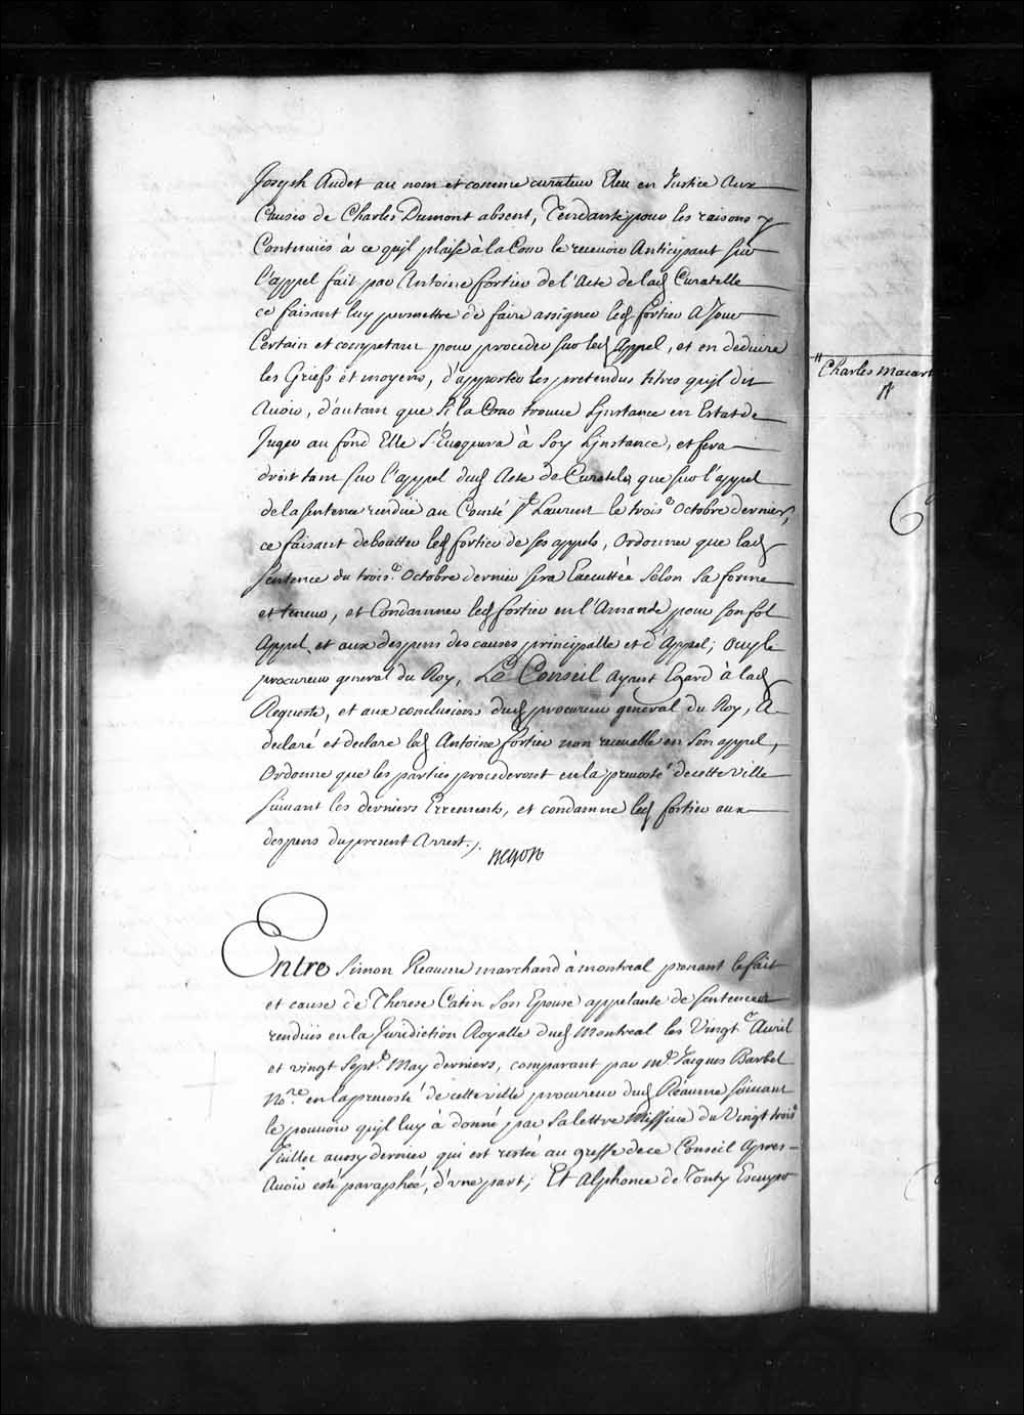 Joseph Audet au nom et comme curateur Eleu en Justice aux
Causes de Charles Dumont absent, Tendante pour les raisons y
Contenües à ce quil plaise à la Cour le recevoir Anticipant sur
l'appel fait par Antoine fortier de l'Acte de lad Curatelle
ce faisant luy permettre de faire assigner led fortier a Jour
Certain et competant pour proceder sur led Appel, et en deduire
les Griefs et moyens, d'apporter les pretendus titres quil dit
Auoir, d'autant que Si la Cour trouue Linstance en Estat de
Juger au fond Elle S'Euoquera à Soy Linstance, et fera
droit tant sur l'appel dud Acte de Curatele que sur l'appel
de la sentence rendüe au Comté St Laurent le trois.e Octobre dernier,
ce faisant deboutter led fortier de ses appels, Ordonner que lad
sentence du trois.e Octobre dernier sera Executtée Selon Sa forme
et teneur, et Condamner led fortier en l'Amande pour son fol
Appel et aux despens des causes principalle et d'Appel; Ouy le
procureur general du Roy, Le Conseil ayant Egard à lad
Requeste, et aux conclusions dud procureur general du Roy, A
declaré et declare led Antoine fortier non receuable en Son appel,
Ordonne que les parties procederont en la preuosté de cette ville
suiuant les derniers Erremens, et condamne led fortier aux
despens du present Arrest ./.
Begon
Entre Simon Reaume marchand à montreal prenant le fait
et cause de Therese Catin Son Epouse appelante de sentences
rendües en la Jurisdiction Royalle dud Montreal les Vingt.e Auril
et vingt Sept.e May derniers, comparant par me. Jacques Barbel
No.re en la preuosté de cette ville procureur dud Reaume suiuant
le pouuoir quil luy à donné par Sa lettre Missiue du Vingt trois.e
Juillet aussy dernier qui est restée au greffe de ce Conseil Apres
Auoir esté paraphée, d'vne part; Et Alphonce de Tonty Escuyer
Charles Macart